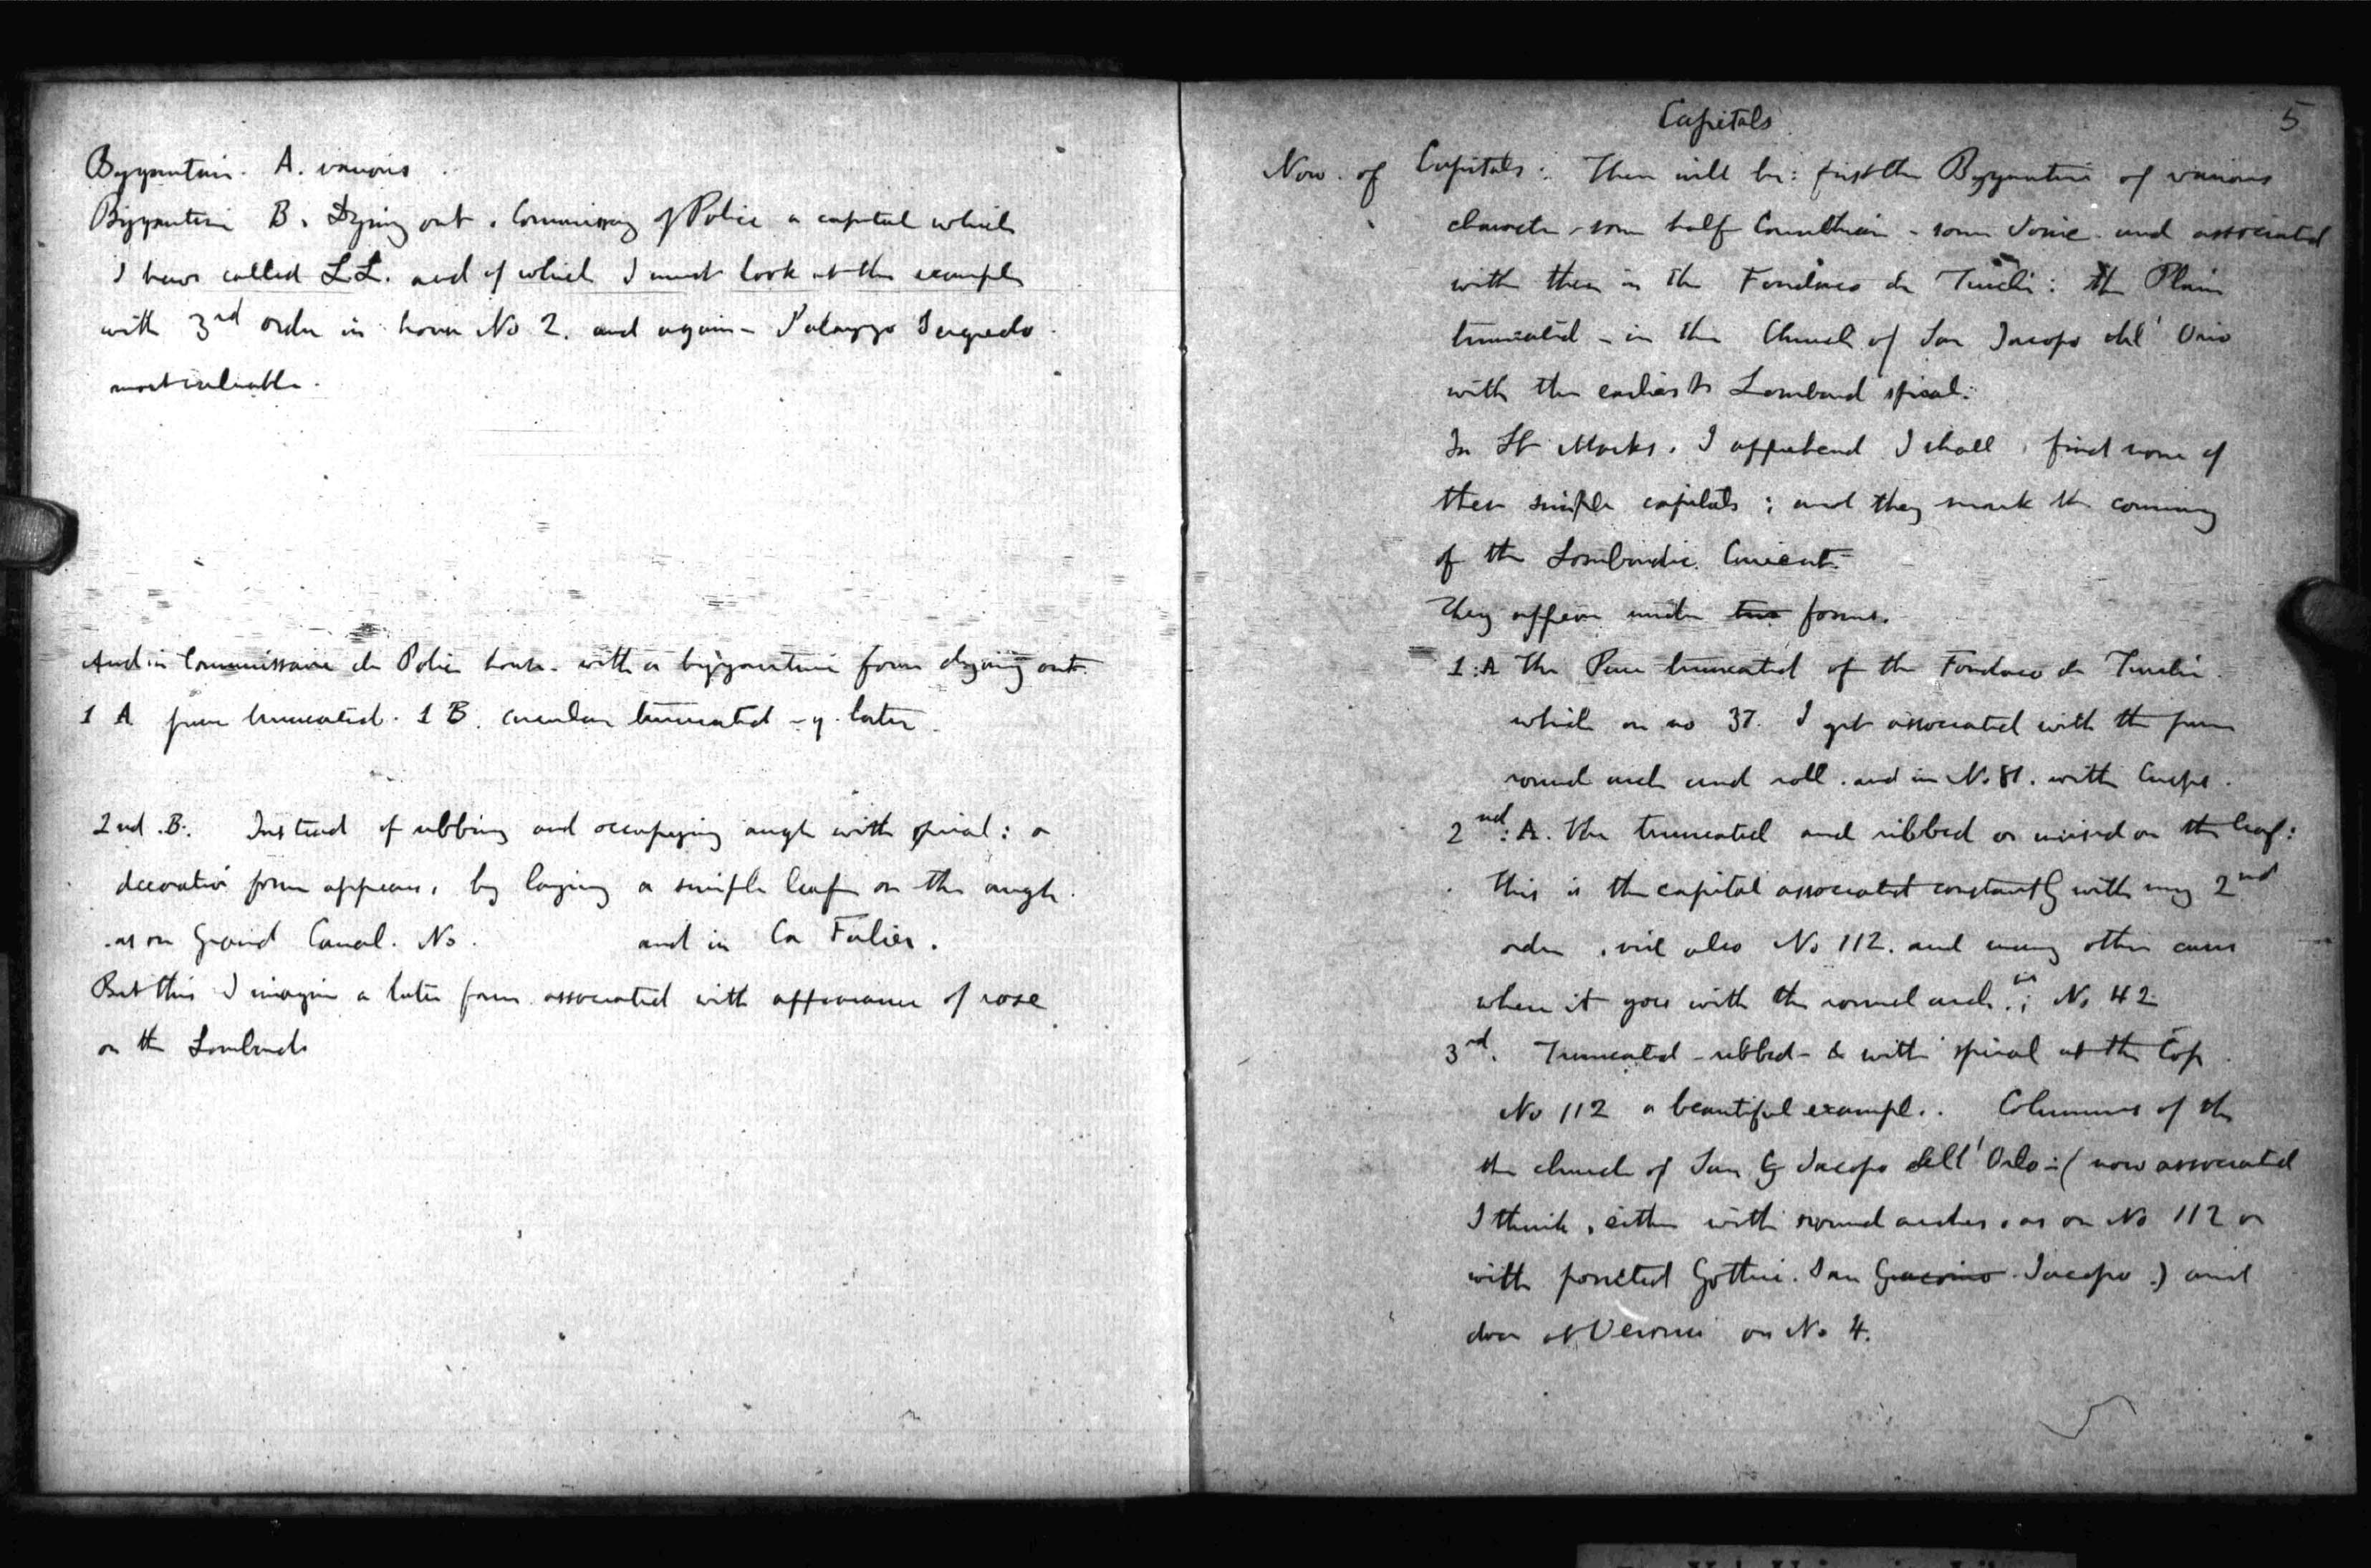 Byzantine. A. various
Byzantine B. Dying out. Commissary of Police a capital which
I have called LL. and of which I must look at the example
with 3rd order in house No 2. and again - Palazzo Sagredo.
most valuable.
And in Commissaire de Police house. with a byzantine form dying out.
1 A pure truncated. 1 B. circular truncated - q. later.
2nd. B. Instead of ribbing and occupying angle with spiral: a
decorative form appears, by laying a simple leaf on the angle.
as on Grand Canal. No. and in Ca Falier.
But this I imagine a later form associated with appearance of rose
on the Lombards
5
Capitals
Now of Capitals: There will be: first the Byzantine of various
character - some half Corinthian - some Ionic and associated
with them in the Fondaco de Turchi: the Plain
truncated - in the Church of San Jacopo del' Orio
with the earliest Lombard spiral:
In St Marks. I apprehend I shall find none of
these simple capitals; and they mark the coming
of the Lombardic Current.
They appear under two forms.
1: A The Pure truncated of the Fondaco de Turchi.
which on no 37. I get associated with the pure
round arch and roll. and in No 81. with Cusps.
2nd: A. The truncated and ribbed or incised on the leaf:
this is the capital associated constantly with my 2nd
order, vid also No 112. and many other cases
when it goes with the round arch. in; No 42
3rd. Truncated - ribbed - & with spiral at the top.
No 112 a beautiful example. Columns of the
the church of San G Jacopo dell' Orlo: (now associated
I think, either with round arches, as on No 112 or
with pointed Gothic. San Giacomo Jacopo.) and
door at Verona on No 4.